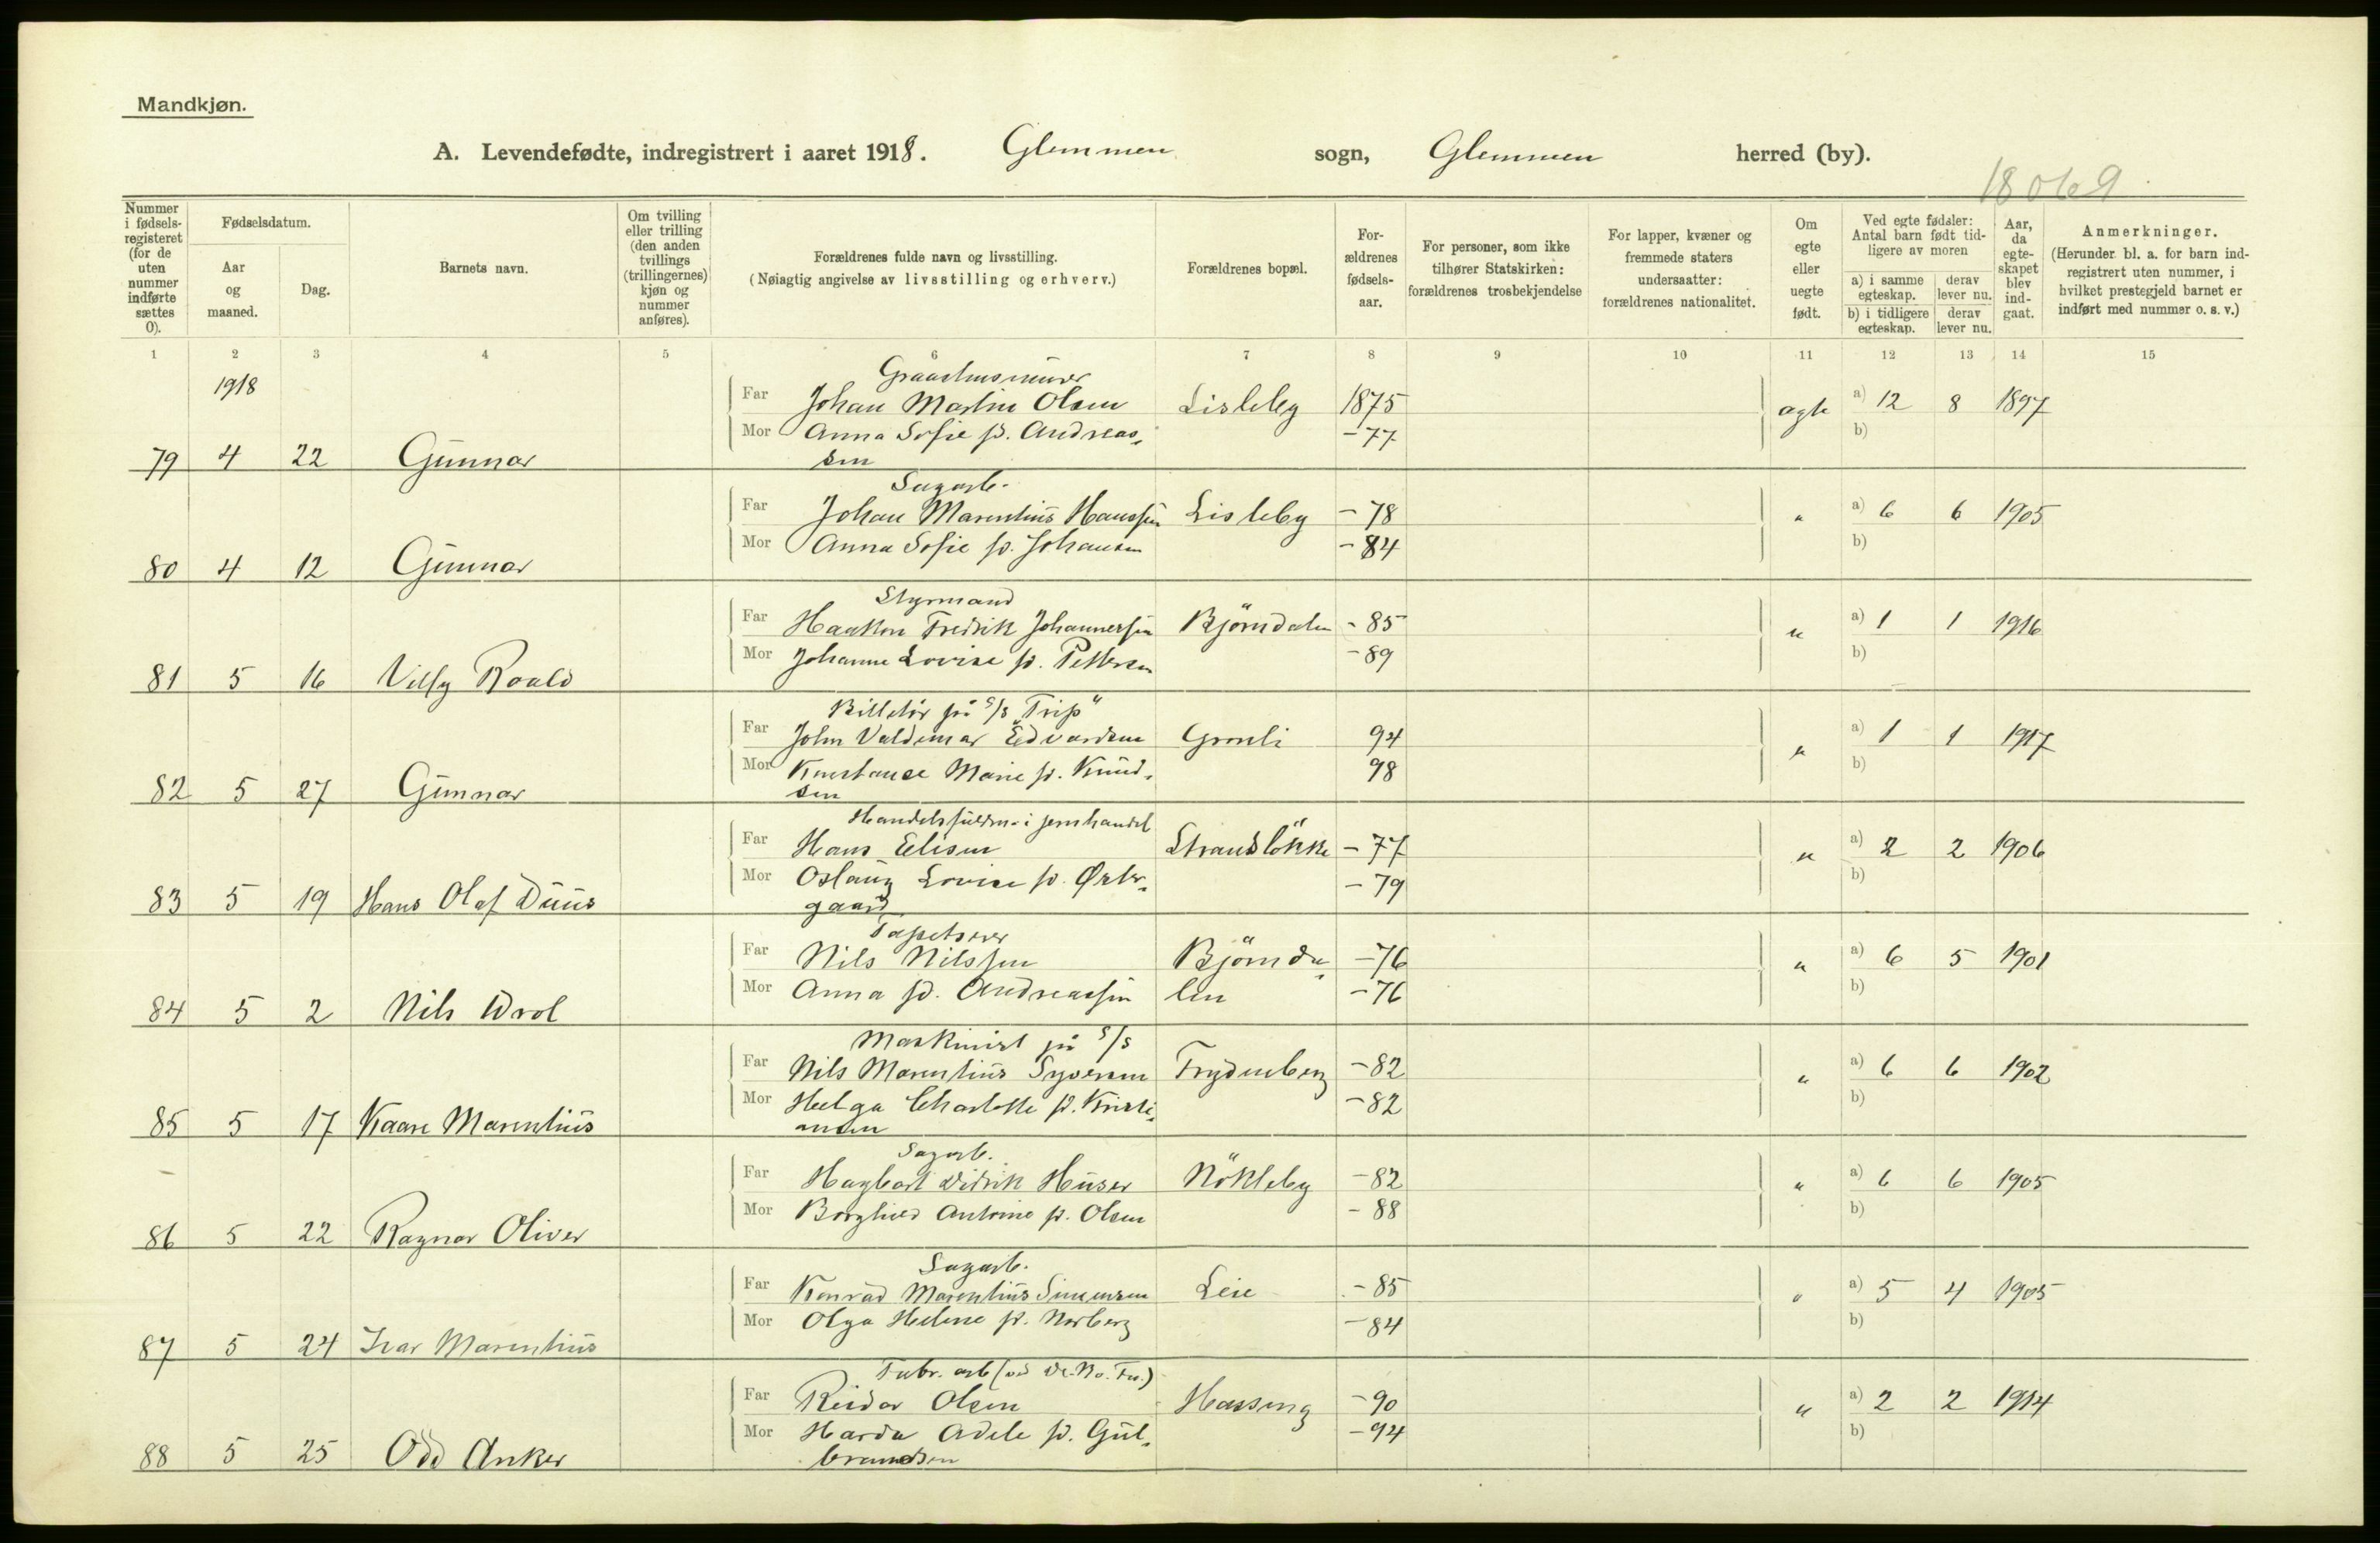 Mandkjøn.
A. Levendefødte, indregistrert i aaret 1918. Glemmen sogn, Glemmen herred (by).
18069
Nummer i fødselsregisteret (for de uten nummer indførte sættes 0).
Fødselsdatum.
Aar og maaned.
Dag.
Barnets navn.
Om tvilling eller trilling (den anden tvillings (trillingernes) kjøn og nummer anføres).
Forældrenes fulde navn og livsstilling.
(Nøiagtig angivelse av livsstilling og erhverv.)
Forældrenes bopæl.
Forældrenes fødselsaar.
For personer, som ikke tilhører Statskirken: forældrenes trosbekjendelse
For lapper, kvæner og fremmede staters undersaatter: forældrenes nationalitet.
Om egte eller uegte født.
Ved egte fødsler: Antal barn født tidligere av moren
a) i samme egteskap. derav lever nu.
b) i tidligere egteskap. derav lever nu.
Aar, da egteskapet blev indgaat.
Anmerkninger.
(Herunder bl. a. for barn indregistrert uten nummer, i hvilket prestegjeld barnet er indført med nummer o. s. v.)
1 2 3 4 5 6 7 8 9 10 11 12 13 14 15
1918
Far Johan Martin Olsen Lisleby 1875 ægte a) 12 8 1897
Mor Anna Sofie f. Andreas- -77 b)
79 4 22 Gunnar sen
Sagarb.
Far Johan Marentius Hanssen Lisleby -78 " a) 6 6 1905
Mor Anna Sofie f. Johansen -84 b)
80 4 12 Gunnar
Styrmand
Far Haakon Fredrik Johannessen Björndalen -85 " a) 1 1 1916
Mor Johanne Lovise f. Pettersen -89 b)
81 5 16 Villy Roald
Billetör på S/S "Trip"
Far John Valdemar Edvardsen Grønli 94 " a) 1 1 1917
Mor Konstanse Marie f. Knud- 98 b)
82 5 27 Gunnar sen
Handelsfuldm. i jernhandel
Far Hans Elisen Strandlökke -77 " a) 2 2 1906
Mor Aslaug Lovise f. Øster- -79 b)
83 5 19 Hans Olaf Duus gaard
Tapetserer
Far Nils Nilssen Björnda- -76 " a) 6 5 1901
Mor Anna f. Andreassen len -76 b)
84 5 2 Nils
Maskinist på S/S
Far Nils Marentius Syversen Frydenberg -82 " a) 6 6 1902
Mor Helga Charlotte f. Kristi- -82 b)
85 5 17 Kaare Marentius ansen
Sagarb.
Far Hagbart Didrik Huser Nökleby -82 " a) 6 6 1905
Mor Borghild Antonie f. Olsen -88 b)
86 5 22 Ragnar Oliver
Sagarb.
Far Konrad Marentius Simensen Leie -85 " a) 5 4 1905
Mor Olga Helene f. Norberg -84 b)
87 5 24 Ivar Marentius
Fabr. arb (ved De. No. Fa.)
Far Reidar Olsen Hassing -90 " a) 2 2 1914
Mor Harda Adele f. Gul- -94 b)
88 5 25 Odd Anker brandsen